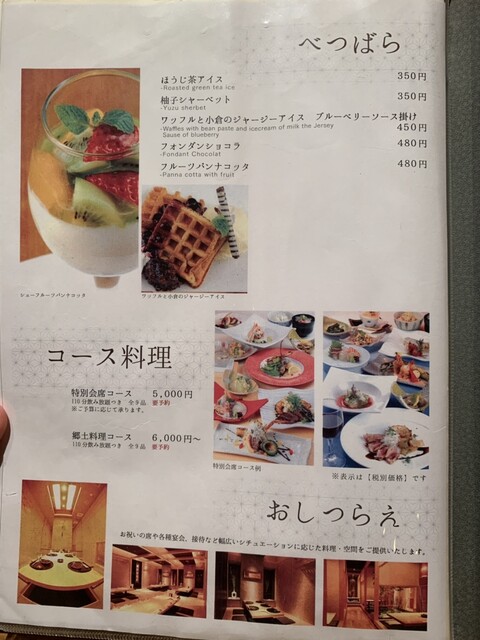 べつばら
ほうじ茶アイス 350円
-Roasted green tea ice
柚子シャーベット 350円
-Yuzu sherbet
ワッフルと小倉のジャージーアイス ブルーベリーソース掛け
-Waffles with bean paste and icecream of milk the Jersey 450円
Sause of blueberry
フォンダンショコラ 480円
-Fondant Chocolat
フルーツパンナコッタ 480円
-Panna cotta with fruit
シューフルーツパンナコッタ
ワッフルと小倉のジャージーアイス
コース料理
特別会席コース 5,000円
110分飲み放題つき 全9品 要予約
※ご予算に応じて承ります。
郷土料理コース 6,000円〜
110分飲み放題つき 全9品 要予約
特別会席コース例
※表示は【税別価格】です
おしつらえ
お祝いの席や各種宴会、接待など幅広いシチュエーションに応じた料理・空間をご提供いたします。